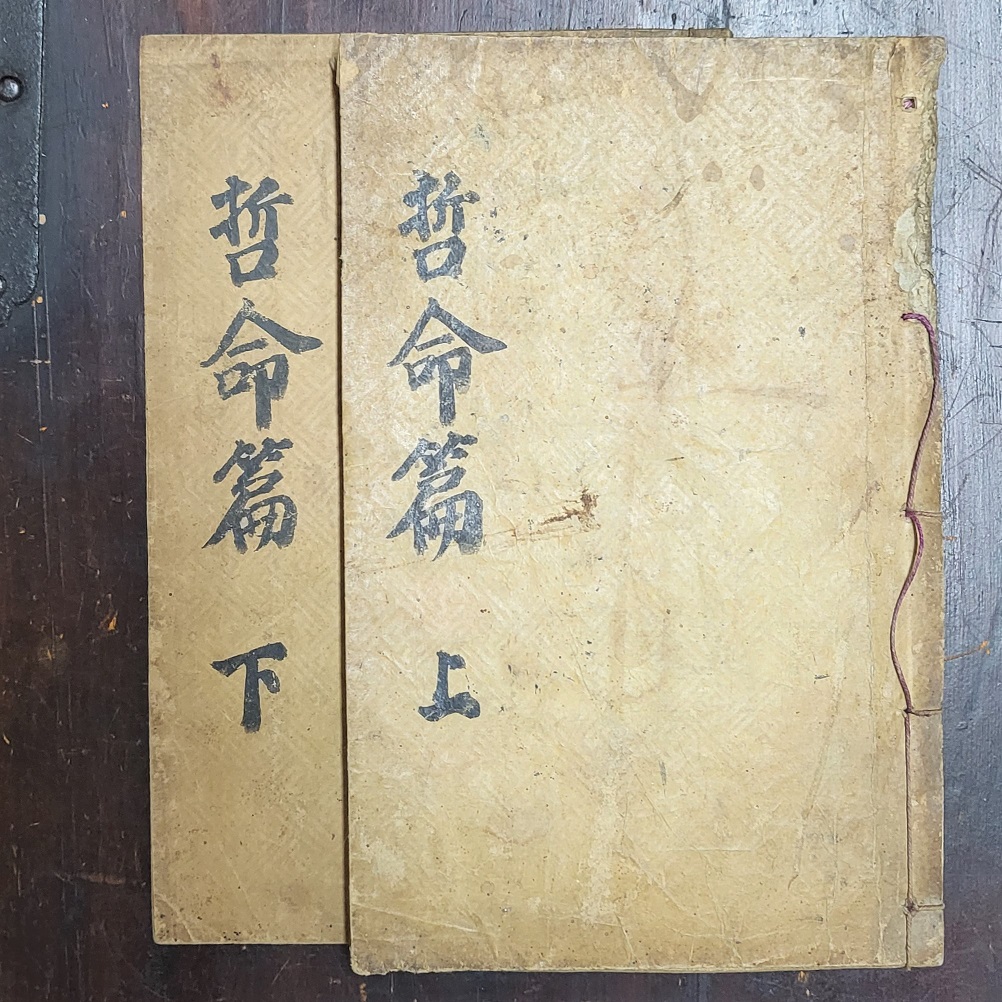 哲命篇 上
哲命篇 下